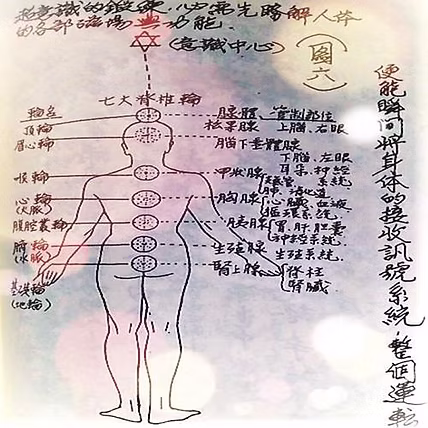 超意識的鍛鍊,必需先瞭解人体
的各部磁場與功能.
(意識中心)
(圖六)
七大脊椎輪
輪名
腺體 管制部位
頂輪
松果腺 上腦、右眼
眉心輪
腦下垂體腺 下腦、左眼
耳朵、神經系統
喉輪
甲狀腺
肺、消化道
心輪
胸腺 心臟、血液
循環系統.
腹腔叢輪
胰腺 胃、肝、胆囊
神經系統
臍輪
生殖腺 生殖系统
腎上腺 脊柱
腎臟
基底輪
(地輪)
便能瞬間將身体的接收訊號系統,整個運転